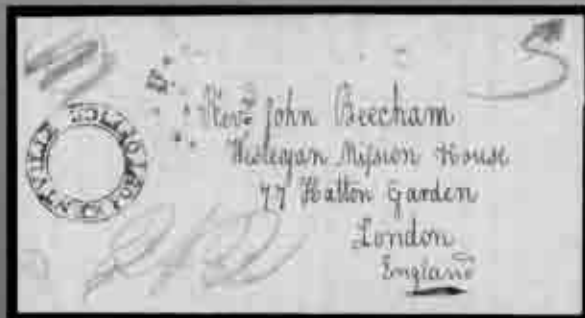 Revd. John Beecham
Weslegan Miſsion House
77 Hatton Garden
London
England